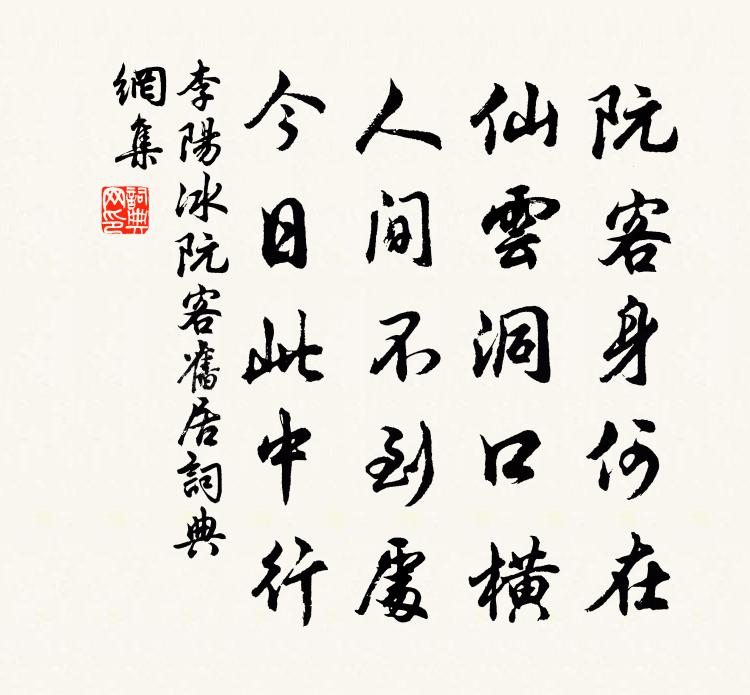 阮客身何在
仙雲洞口橫
人間不到處
今日此中行
李陽冰阮客舊居詞典
網集
詞典
网印